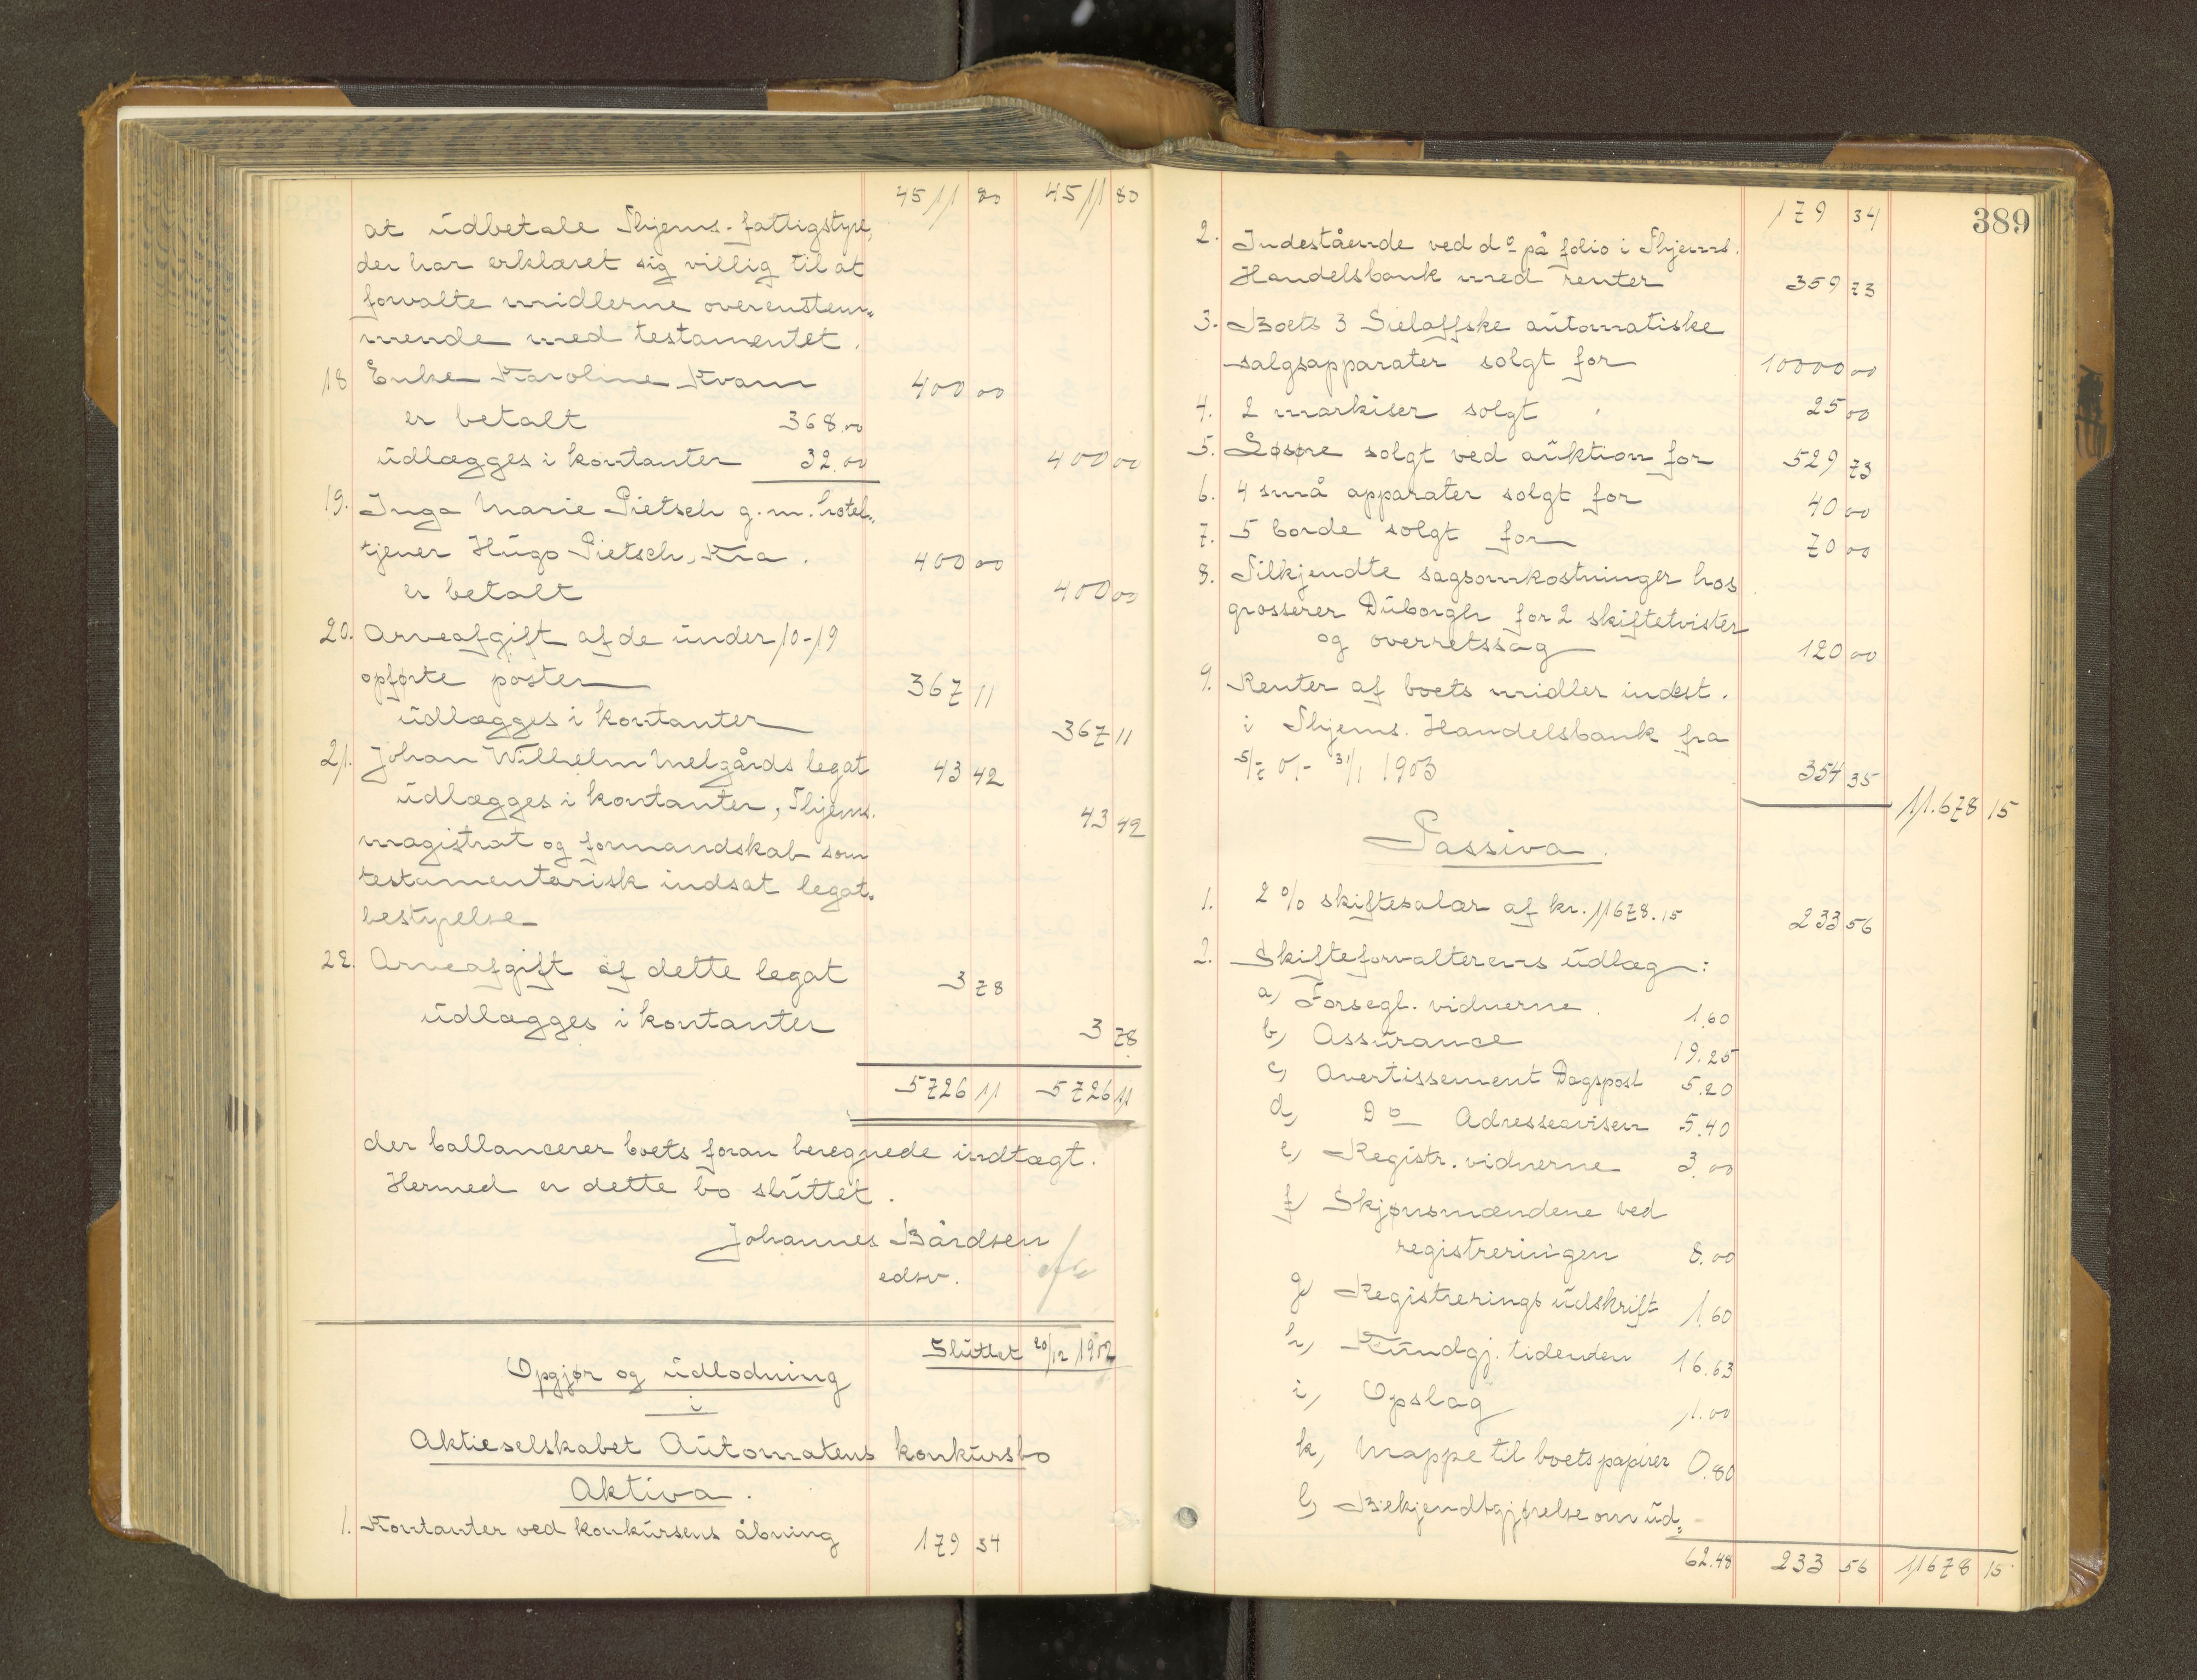 4511 80 4511 80
at udbetale Thjems. fattigstyre,
der har erklæret sig villig til at
forvalte midlerne overenstem„
mende med testamentet.
18 Enke Karoline Kvam 400 00
er betalt 368.00
udlægges i kontanter 32.00 400 00
19. Inga Marie Pietsch g. m. hotel„
tjener Hugo Pietsch, Kra. 400 00
er betalt 400 00
20. Arveafgift af de under 10-19
opførte poster 367 11
udlægges i kontanter 367 11
21. Johan Wilhelm Melgårds legat 43 42
udlægges i kontanter, Thjems. 43 42
magistrat og formandskab som
testamentarisk indsat legat„
bestyrelse
22. Arveafgift af dette legat 3 78
udlægges i kontanter 3 78
5726 11 5726 11
der ballancerer boets foran beregnede indtægt.
Hermed er dette bo sluttet.
Johannes Bårdsen
edsv.
Sluttet 20/12 1902
Opgjør og udlodning
i
Aktieselskabet Automatens konkursbo
Aktiva.
1. Kontanter ved konkursens åbning 179 34
389
179 34
2. Indestående ved do på folio i Thjems.
Handelsbank med renter 359 73
3. Boets 3 Sielaffske automatiske
salgsapparater solgt for 10000 00
4. 2 markiser solgt " 25 00
5. Løsøre solgt ved auktion for 529 73
6. 4 små apparater solgt for 40 00
7. 5 borde solgt for 70 00
8. Tilkjendte sagsomkostninger hos
grosserer Duborgh for 2 skiftetvister
og overretssag 120 00
9. Renter af boets midler indest.
i Thjems. Handelsbank fra
5/7 01- 31/1 1903 354 35
11.678 15
Passiva.
1. 2 % skiftesalær af kr. 11678.15 233 56
2. Skifteforvalterens udlæg:
a, Forsegl. vidnerne 1.60
b, Assurance 19.25
c, Avertissement Dagspost 5.20
d, Do Adresseavisen 5.40
e, Registr. vidnerne 3.00
f, Skjønsmændene ved
registreringen 8.00
g, Registrerings udskrift 1.60
h, Kundgj. tidenden 16.63
i, Opslag 1.00
k, Mappe til boets papirer 0.80
l, Bekjendtgjørelse om ud„
62.48 233 56 11678 15